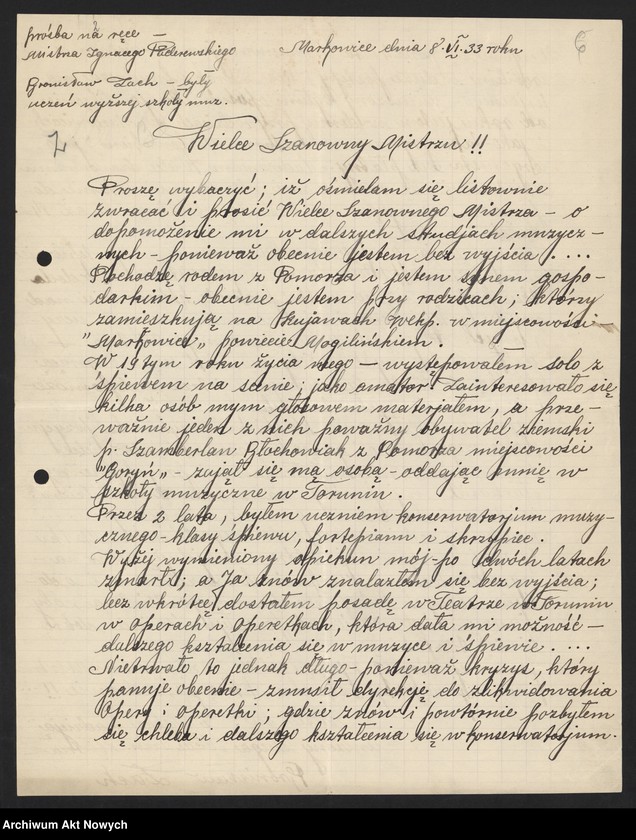 prośba na ręce –
Mistrza Ignacego Paderewskiego
Markowice dnia 8. VI. 33 roku
6
Bronisław Lach – były
uczeń wyższej szkoły muz.
Wielce Szanowny Mistrzu !!
Proszę wybaczyć ; iż ośmielam się listownie
zwracać i prosić Wielce Szanownego Mistrza – o
dopomożenie mi w dalszych studjach muzycz-
nych – ponieważ obecnie jestem bez wyjścia . . . .
Pochodzę rodem z Pomorza i jestem synem gospo-
darkim – obecnie jestem przy rodzicach ; którzy
zamieszkują na Kujawach Wlkp. w miejscowości –
"Markowice„ powiecie Mogilińskiem .
W 19 tym roku życia mego – występowałem solo z
śpiewem na scenie ; jako amator. Zainteresowało się
kilka osób mym głosowem materjałem, a prze –
ważnie jeden z nich poważny obywatel ziemski
p. Szambelan Błochowiak z Pomorza miejscowości
"Goryń„ – zajął się mą osobą – oddając mnię w
szkoły muzyczne w Toruniu .
Przez 2 lata, byłem uczniem konserwatorjum muzy-
cznego – klasy śpiewu, fortepianu i skrzypiec .
Wyżej wymieniony opiekun mój – po dwóch latach
zmarł ; a Ja znów znalazłem się bez wyjścia ;
bez wkrótce dostałem posadę w Teatrze w Toruniu
w operach i operetkach, która dała mi możność –
dalszego kształcenia się w muzyce i śpiewie . . . .
Nietrwało to jednak długo – ponieważ kryzys, który
panuje obecnie – zmusił dyrekcję do zlikwidowania
Opery i operetki ; gdzie znów i powtórnie pozbyłem
się chleba i dalszego kształcenia się w konserwatorjum.
Archiwum Akt Nowych